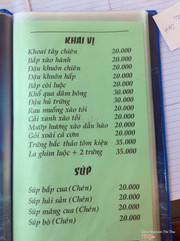 KHAI VỊ
Khoai tây chiên 20.000
Bắp xào hành 20.000
Đậu khuôn chiên 20.000
Đậu khuôn hấp 20.000
Bắp cỏi luộc 20.000
Khổ qua dầm bông 30.000
Đậu hũ trứng 30.000
Rau muống xào tỏi 20.000
Cải xanh xào tỏi 20.000
Mướp hương xào dầu hào 20.000
Gỏi xoài cá cơm 20.000
Trứng bắc thảo tôm kiệu 35.000
La ghim luộc + 2 trứng 35.000
SÚP
Súp bắp cua (Chén) 20.000
Súp hải sản (Chén) 20.000
Súp măng cua (Chén) 20.000
Súp bò (Chén) 20.000